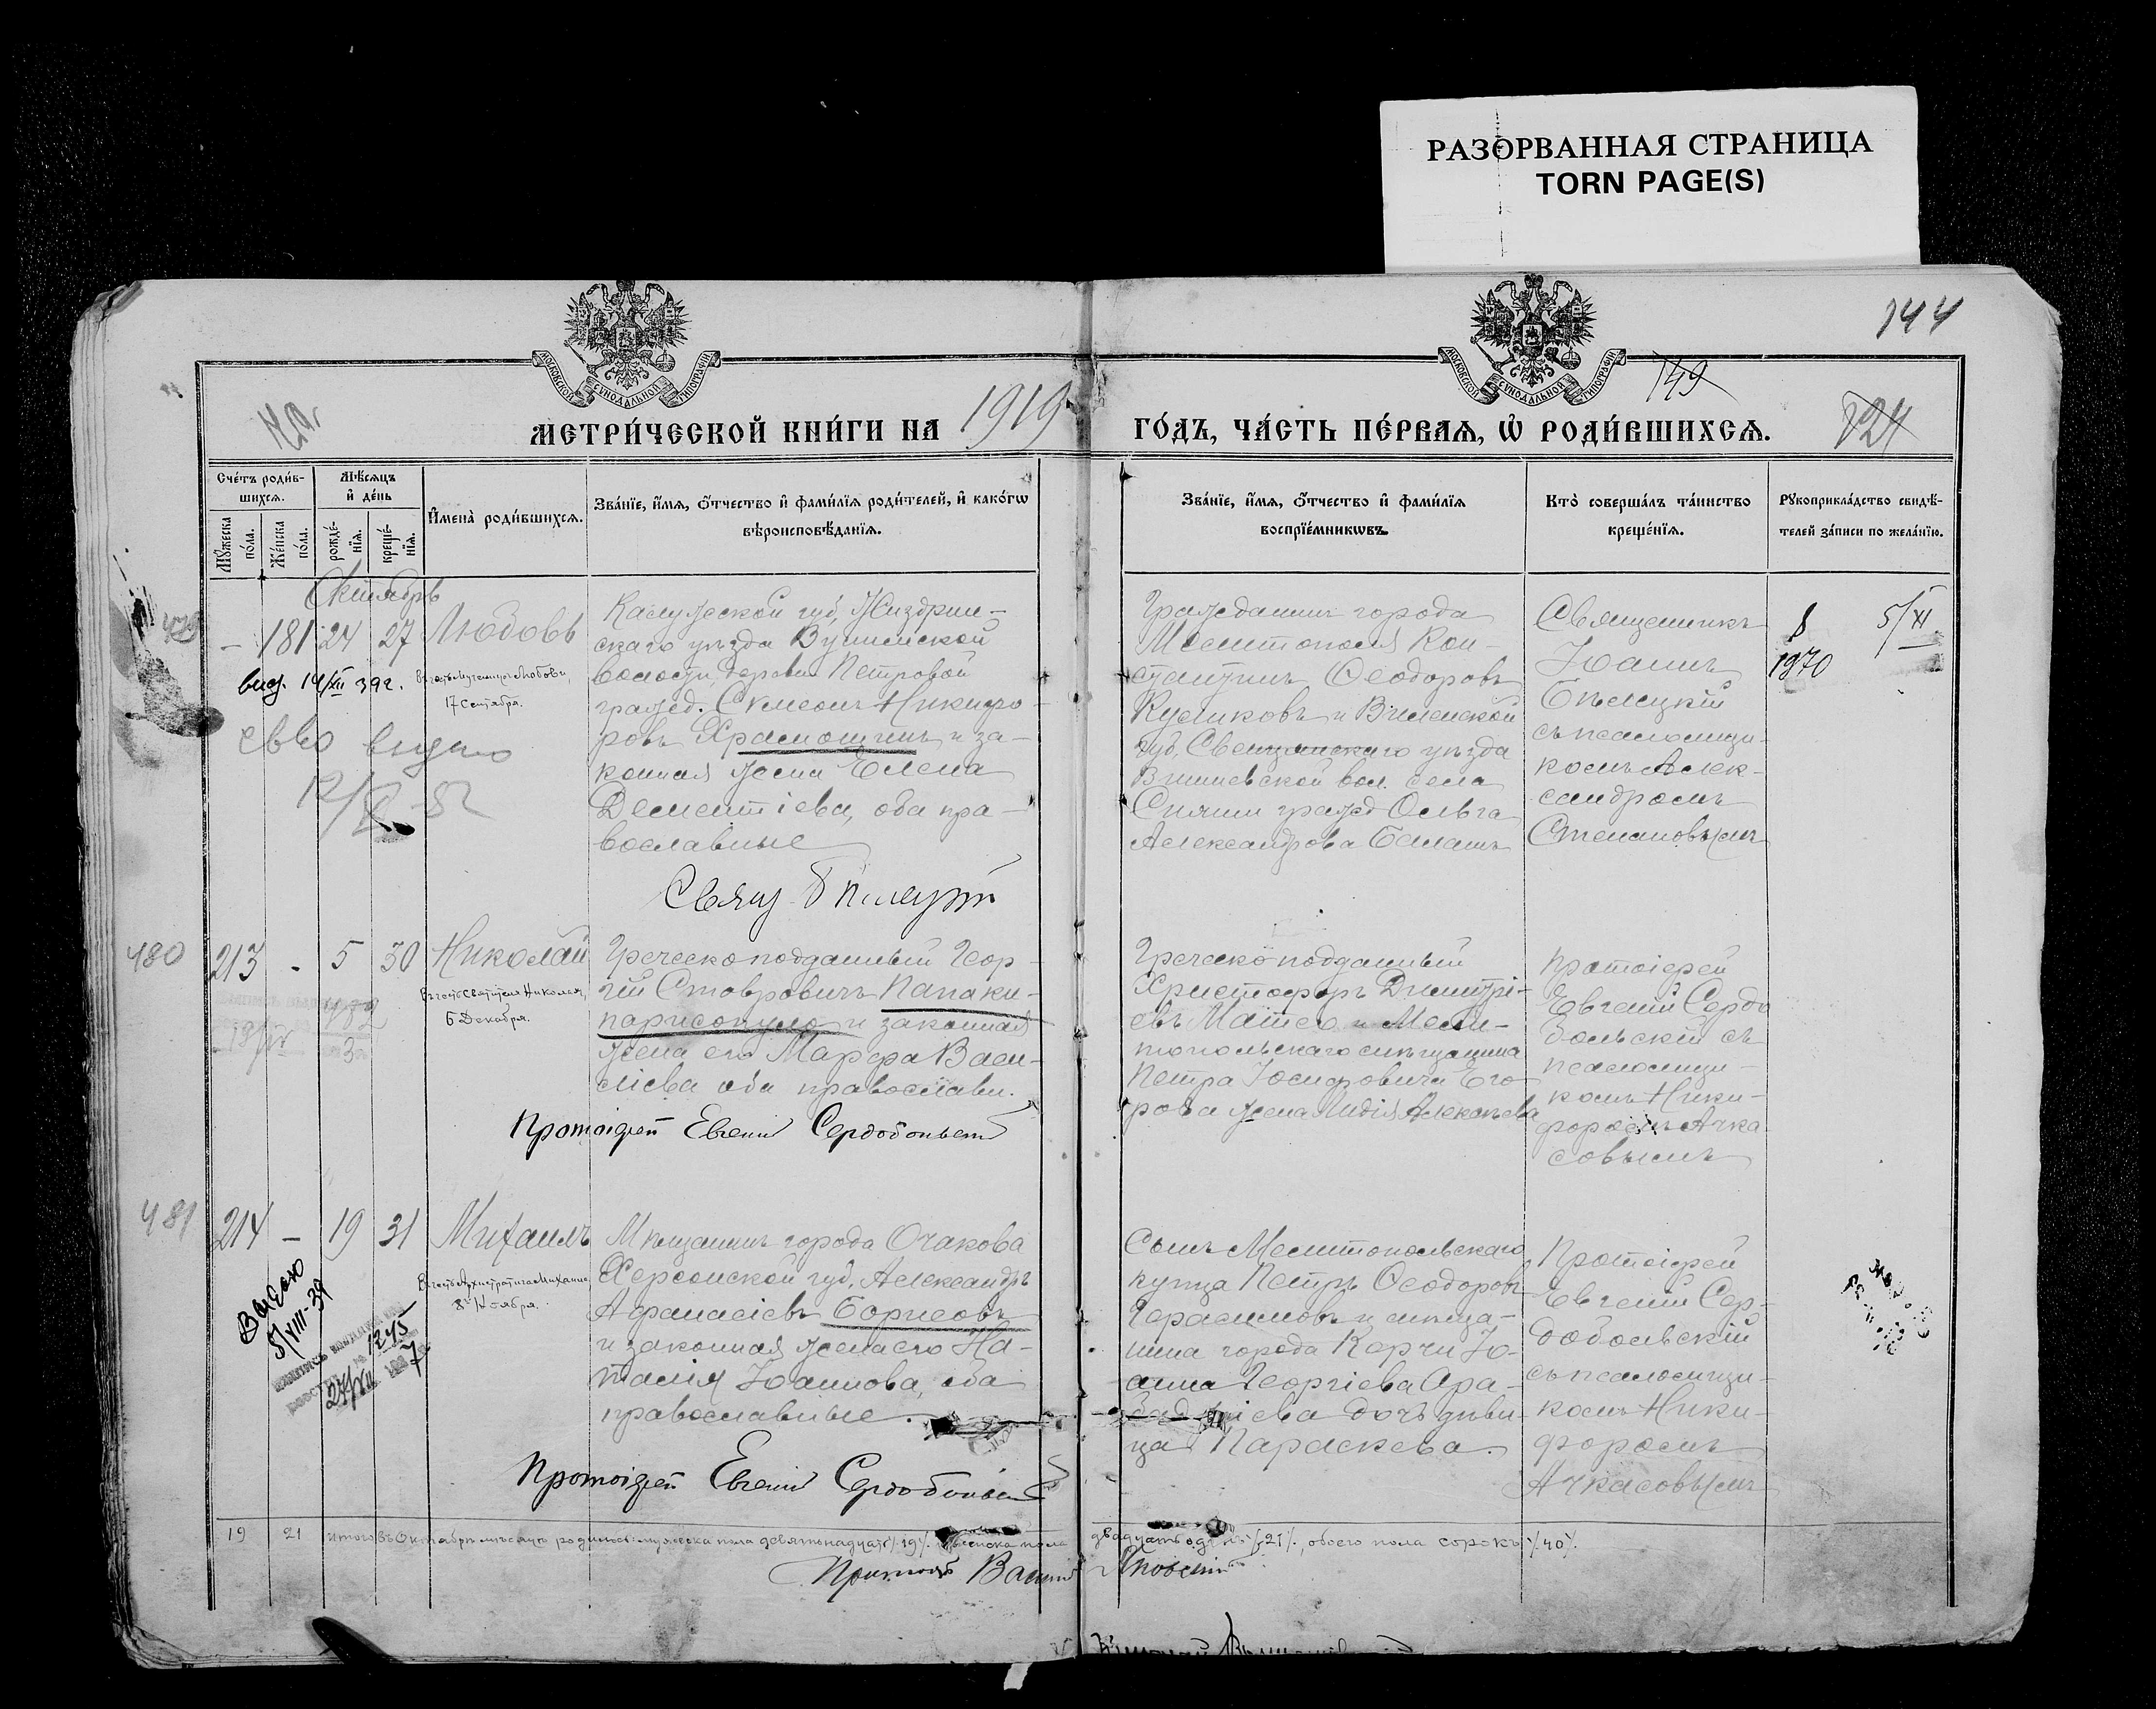 РАЗОРВАННАЯ СТРАНИЦА
TORN PAGE(S)
144
149
124
МОСКОВСКОЙ СѴНОДАЛЬНОЙ ТИПОГРАФІИ
МОСКОВСКОЙ СѴНОДАЛЬНОЙ ТИПОГРАФІИ
МЕТРИ́ЧЕСКОЙ КНИ́ГИ НА 1919
ГО́ДЪ, ЧА́СТЬ ПЕ́РВАЯ, Ѡ РОДИ́ВШИХСЯ.
Сче́тъ роди́в-
шихся.
Мѣ́сяцъ
и҆ де́нь
Мꙋ́жеска
по́ла.
Же́нска
по́ла.
рожде́-
нїя.
креще́-
нїя.
И҆мена̀ роди́вшихся.
Зва́нїе, и҆́мя, ѻ҆́тчество и҆ фами́лїя роди́телей, и҆ како́гѡ
вѣроисповѣ́данїя.
Зва́нїе, и҆́мя, ѻ҆́тчество и҆ фами́лїя
воспрїе́мникѡвъ.
Кто̀ соверша́лъ та́инство
креще́нїя.
Рꙋкоприкла́дство свидѣ́-
телей за́писи по жела́нїю.
Октябрь
479
- 181 24 27 Любовь
Въ честь Мученицы Любови,
17 Сентября.
выд. 14/XII 39 г.
св-во выдано
Калужской губ, Жиздрин-
скаго уѣзда
волости, деревни Петровой
гражд. Симеонъ Никифо-
ровъ Храмошинъ и за-
конная жена Елена
Дементіева, оба пра-
вославные
Гражданинъ города
Мелитополя Кон-
стантинъ Ѳеодоровъ
Куликовъ и Виленской
губ, Свенцянскаго уѣзда
Вишневской вол. села
гражд Ольга
Александрова
Священникъ
Іоаннъ
Бѣлецкій
съ псаломщи-
комъ Алек-
сандромъ
Степановымъ
5/XI
1970
480
213 - 5 30 Николай
Въ честь Святителя Николая,
6 Декабря.
Греческоподданный Геор-
гій Ставровичъ Папаки-
парисопуло и законная
жена его Марѳа Васи-
лієва оба православн.
Протоіерей Евгеній Сердобольскій
Греческоподданный
Христофоръ Димитрі-
евъ и Мели-
топольскаго мѣщанина
Петра Іосифовича Его-
рова жена Лидія Алексѣева
Протоіерей
Евгеній Сердо
больскій съ
псаломщи-
комъ Ники-
форомъ Ачка
совымъ
481
214 - 19 31 Михаилъ
Въ честь Архистратига Михаила,
8го Ноября.
Выдано
5/VIII-39
1245
7
27/VIII
Мѣщанинъ города Очакова
Херсонской губ, Александръ
Афанасіевъ Борисовъ
и законная жена его На-
талія Іоаннова, оба
православные.
Протоіерей Евгеній Сердобольскій
Сынъ Мелитопольскаго
купца Петръ Ѳеодоровъ
Герасимовъ и мѣща-
нина города Керчи Іо-
анна Георгіева Ара-
дочь дѣви-
ца Параскева.
Протоіерей
Евгеній Сер-
добольскій
съ псаломщи-
комъ Ники-
форомъ
Ачкасовымъ
19 21 Итого въ Октябрѣ мѣсяцѣ родилось: мужеска пола девятнадцать /19/. женска пола двадцать одна /21/., обоего пола сорокъ /40/.